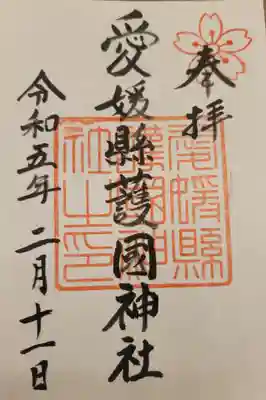 奉拝
愛媛縣護國神社
令和五年 二月十一日
愛媛縣
護國神
社之印